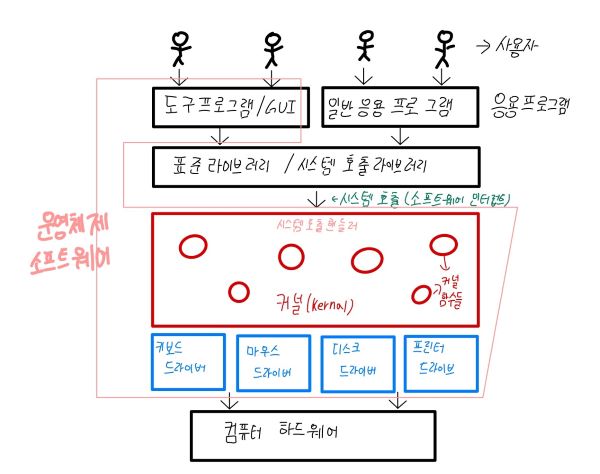 → 사용자
도구프로그램/GUI
일반 응용 프로그램
응용프로그램
표준 라이브러리 / 시스템 호출 라이브러리
← 시스템 호출 (소프트웨어 인터럽트)
운영체제
소프트웨어
시스템 호출 핸들러
커널
함수들
커널 (Kernal)
키보드
드라이버
마우스
드라이버
디스크
드라이버
프린터
드라이브
컴퓨터 하드웨어